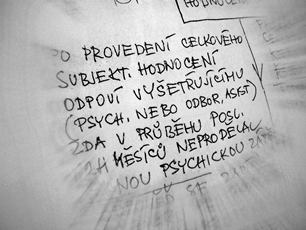 HODNOCENÍ
PO PROVEDENÍ CELKOVÉHO
SUBJEKT. HODNOCENÍ
ODPOVÍ VYŠETŘUJÍCÍMU
(PSYCH, NEBO ODBOR, ASIST)
ZDA V PRŮBĚHU POSL.
24 MĚSÍCŮ NEPRODĚLAL
NOU PSYCHICKOU